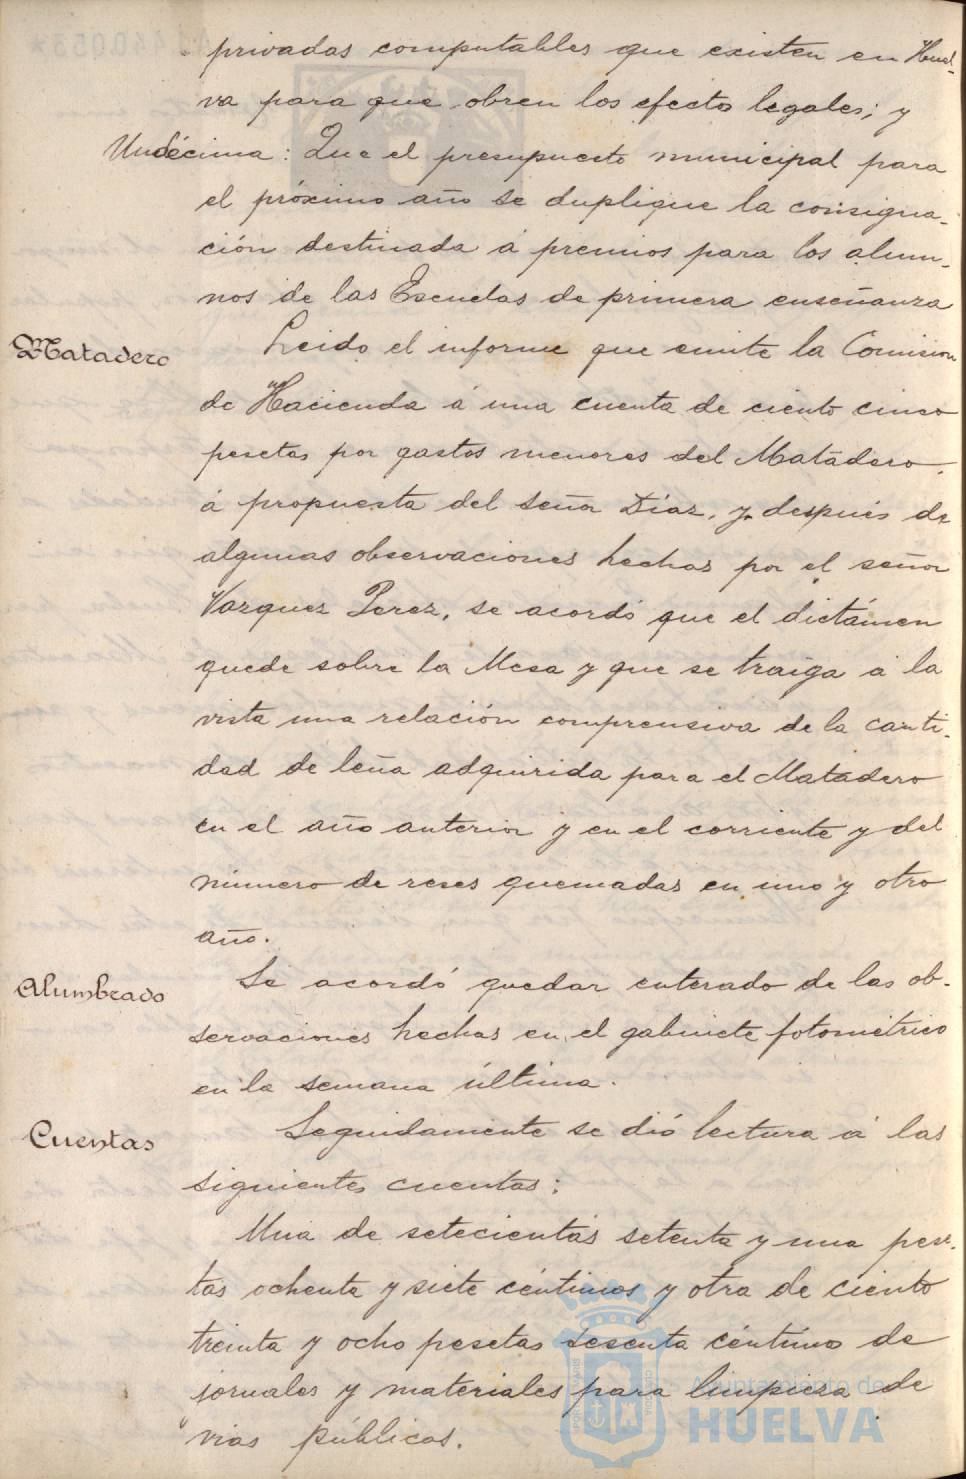 privadas computables que existen en Huel-
va para que obren los efectos legales; y
Undécima: Que el presupuesto municipal para
el próximo año se duplique la consigna-
ción destinada á premios para los alum-
nos de las Escuelas de primera enseñanza
Matadero
Leido el informe que emite la Comision
de Hacienda á una cuenta de ciento cinco
pesetas por gastos menores del Matadero,
á propuesta del señor Díaz, y después de
algunas observaciones hechas por el señor
Vazquez Perez, se acordó que el dictámen
quede sobre la Mesa y que se traiga á la
vista una relación comprensiva de la canti-
dad de leña adquirida para el Matadero
en el año anterior y en el corriente y del
número de reses quemadas en uno y otro
año.
Alumbrado
Se acordó quedar enterado de las ob-
servaciones hechas en el gabinete fotométrico
en la semana última.
Cuentas
Seguidamente se dió lectura á las
siguientes cuentas:
Una de setecientas setenta y una pese-
tas ochenta y siete céntimos y otra de ciento
treinta y ocho pesetas sesenta céntimos de
jornales y materiales para limpieza de
vias públicas.
Ayuntamiento de
HUELVA